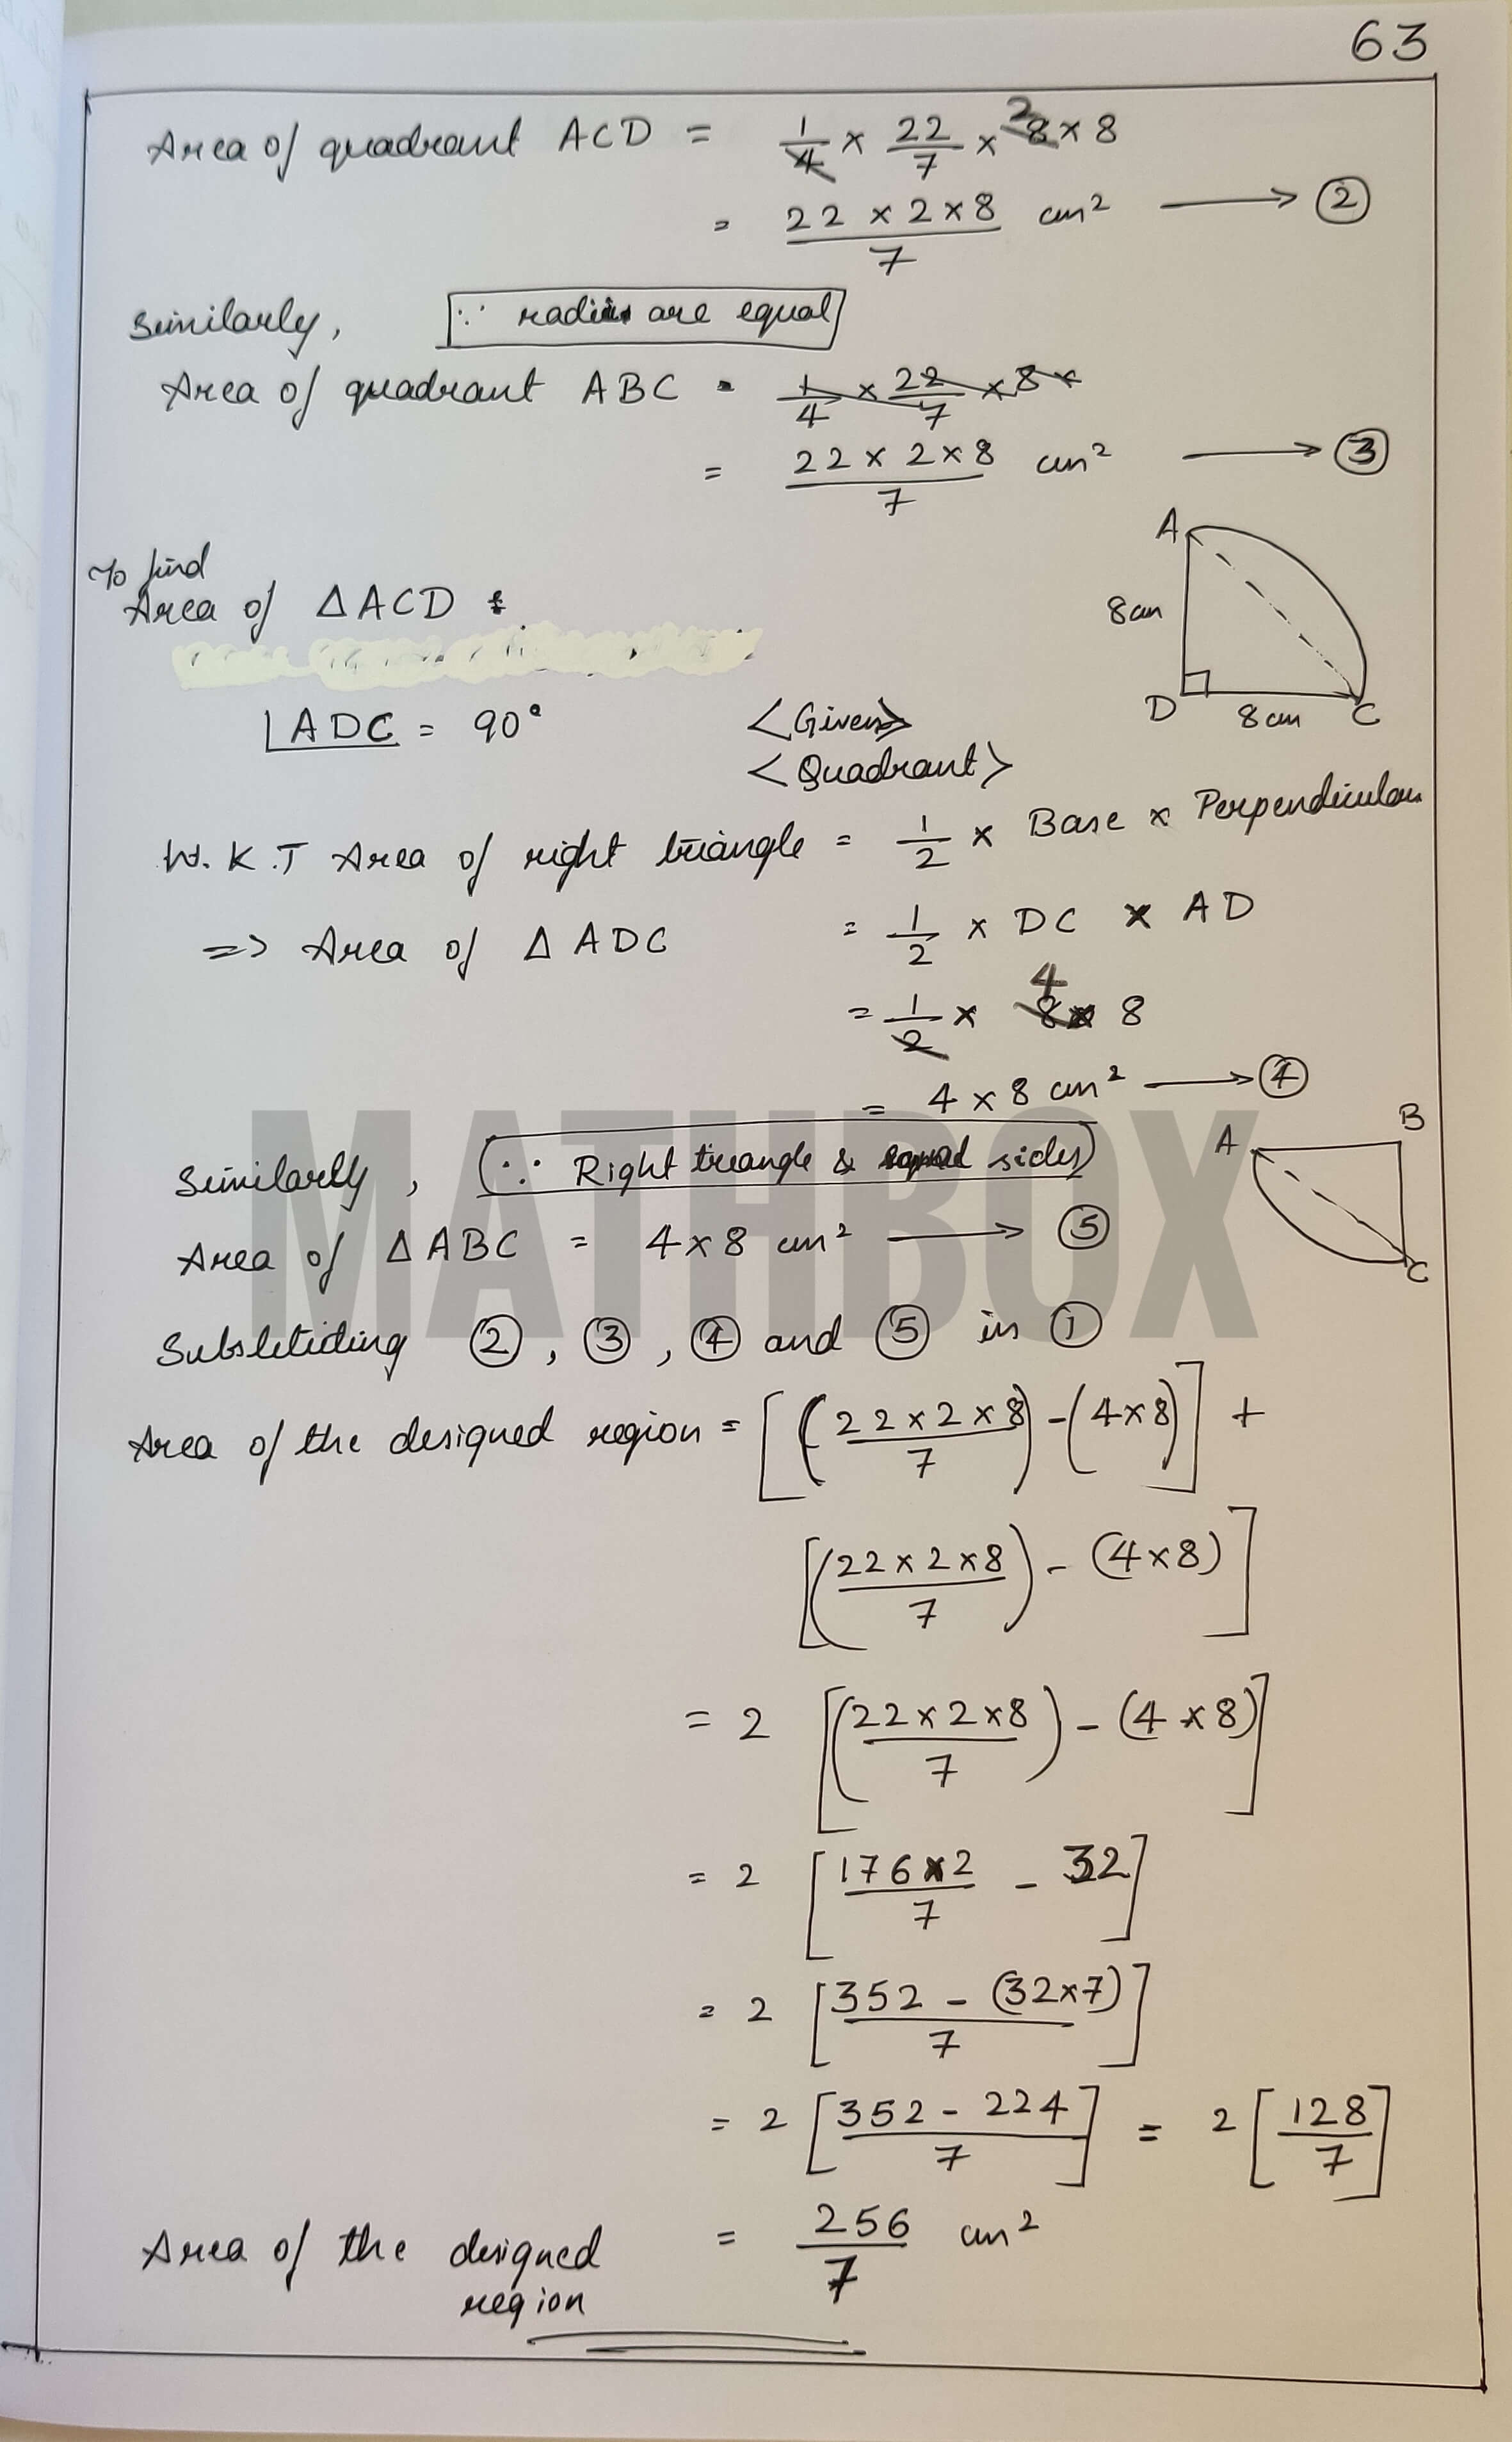 63
Area of quadrant ACD = 1/4 × 22/7 × 8 × 8
2
= 22 × 2 × 8 / 7 cm² → ②
Similarly, ∵ radius are equal
Area of quadrant ABC = 1/4 × 22/7 × 8 ×
= 22 × 2 × 8 / 7 cm² → ③
To find
Area of △ACD
A
8cm
D 8cm C
∠ADC = 90° <Given>
<Quadrant>
W.K.T Area of right triangle = 1/2 × Base × Perpendicular
=> Area of △ADC = 1/2 × DC × AD
4
= 1/2 × 8 × 8
= 4 × 8 cm² → ④
Similarly, (∵ Right triangle & equal sides)
A B
C
Area of △ABC = 4 × 8 cm² → ⑤
MATHBOX
Substituting ②, ③, ④ and ⑤ in ①
Area of the designed region = [(22 × 2 × 8 / 7) - (4 × 8)] +
[(22 × 2 × 8 / 7) - (4 × 8)]
= 2 [(22 × 2 × 8 / 7) - (4 × 8)]
= 2 [176 × 2 / 7 - 32]
= 2 [352 - (32 × 7) / 7]
= 2 [352 - 224 / 7] = 2 [128 / 7]
Area of the designed = 256 / 7 cm²
region